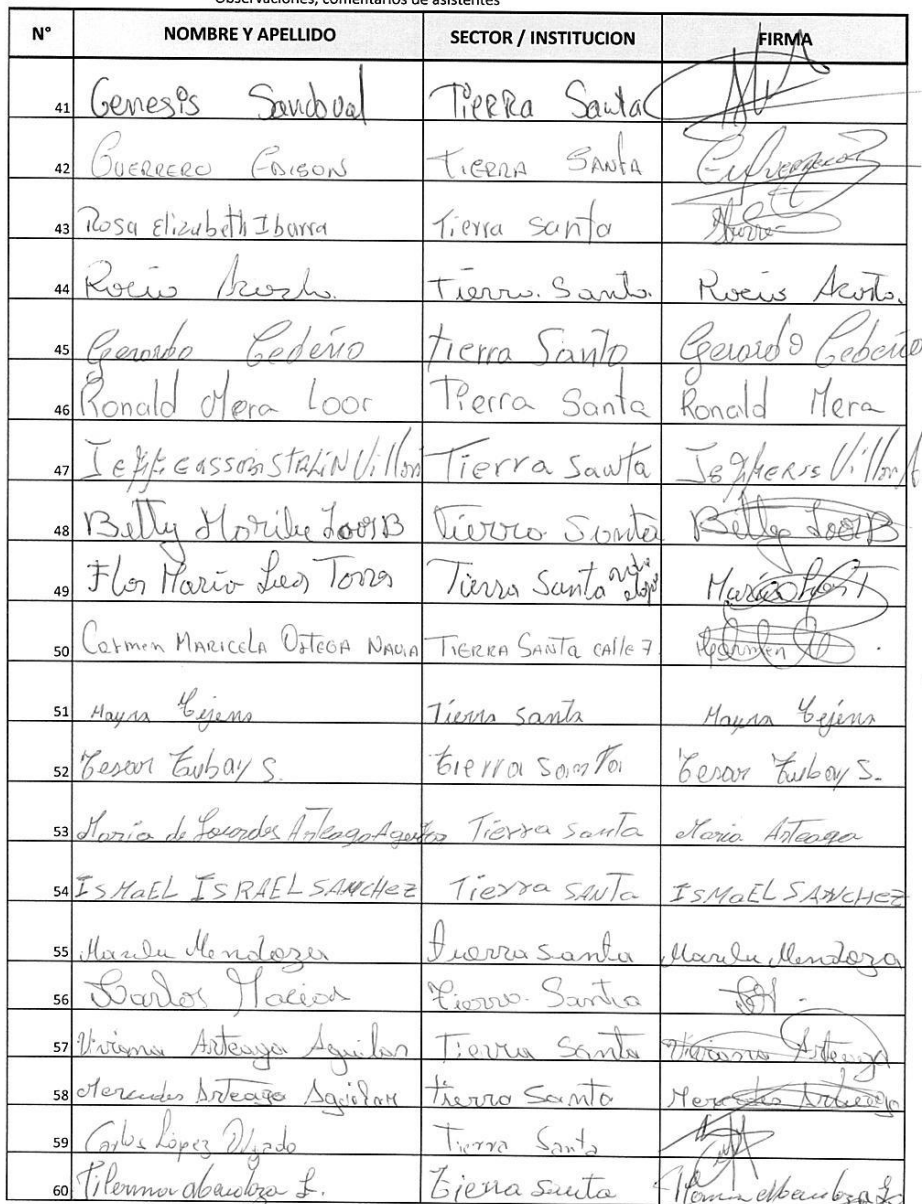 Observaciones, comentarios de asistentes
N° NOMBRE Y APELLIDO SECTOR / INSTITUCION FIRMA
41 Genesis Sandoval Tierra Santa
42 Guerrero Edison Tierra Santa
43 Rosa Elizabeth Ibarra Tierra santa
44 Rocio Acosta. Tierra. Santa. Rocio Acosta.
45 Gerardo Cedeño tierra Santa Gerardo Cedeño
46 Ronald Mera Loor Tierra Santa Ronald Mera
47 STALIN Villon Tierra Santa Villon
48 Betty Marilu Loor B Tierra Santa Betty Loor B
49 Flor Maria Torres Tierra Santa Maria
50 Carmen MARICELA ORTEGA TIERRA SANTA calle 7 Carmen
51 Mayra Tierra Santa Mayra
52 Cesar Tubay S. tierra Santa Cesar Tubay S.
53 Maria de Lourdes Arteaga Tierra santa Maria Arteaga
54 ISMaEL ISRAEL SANCHEZ Tierra SANTa ISMaEL SANCHEZ
55 Marilu Mendoza tierra santa Marilu Mendoza
56 Carlos Macias Tierra. Santa
57 Viviana Arteaga Aguilar Tierra Santa Viviana Arteaga
58 Mercedes Arteaga Aguilar tierra Santa Mercedes Arteaga
59 Carlos López Tierra Santa
60 Tierra Santa